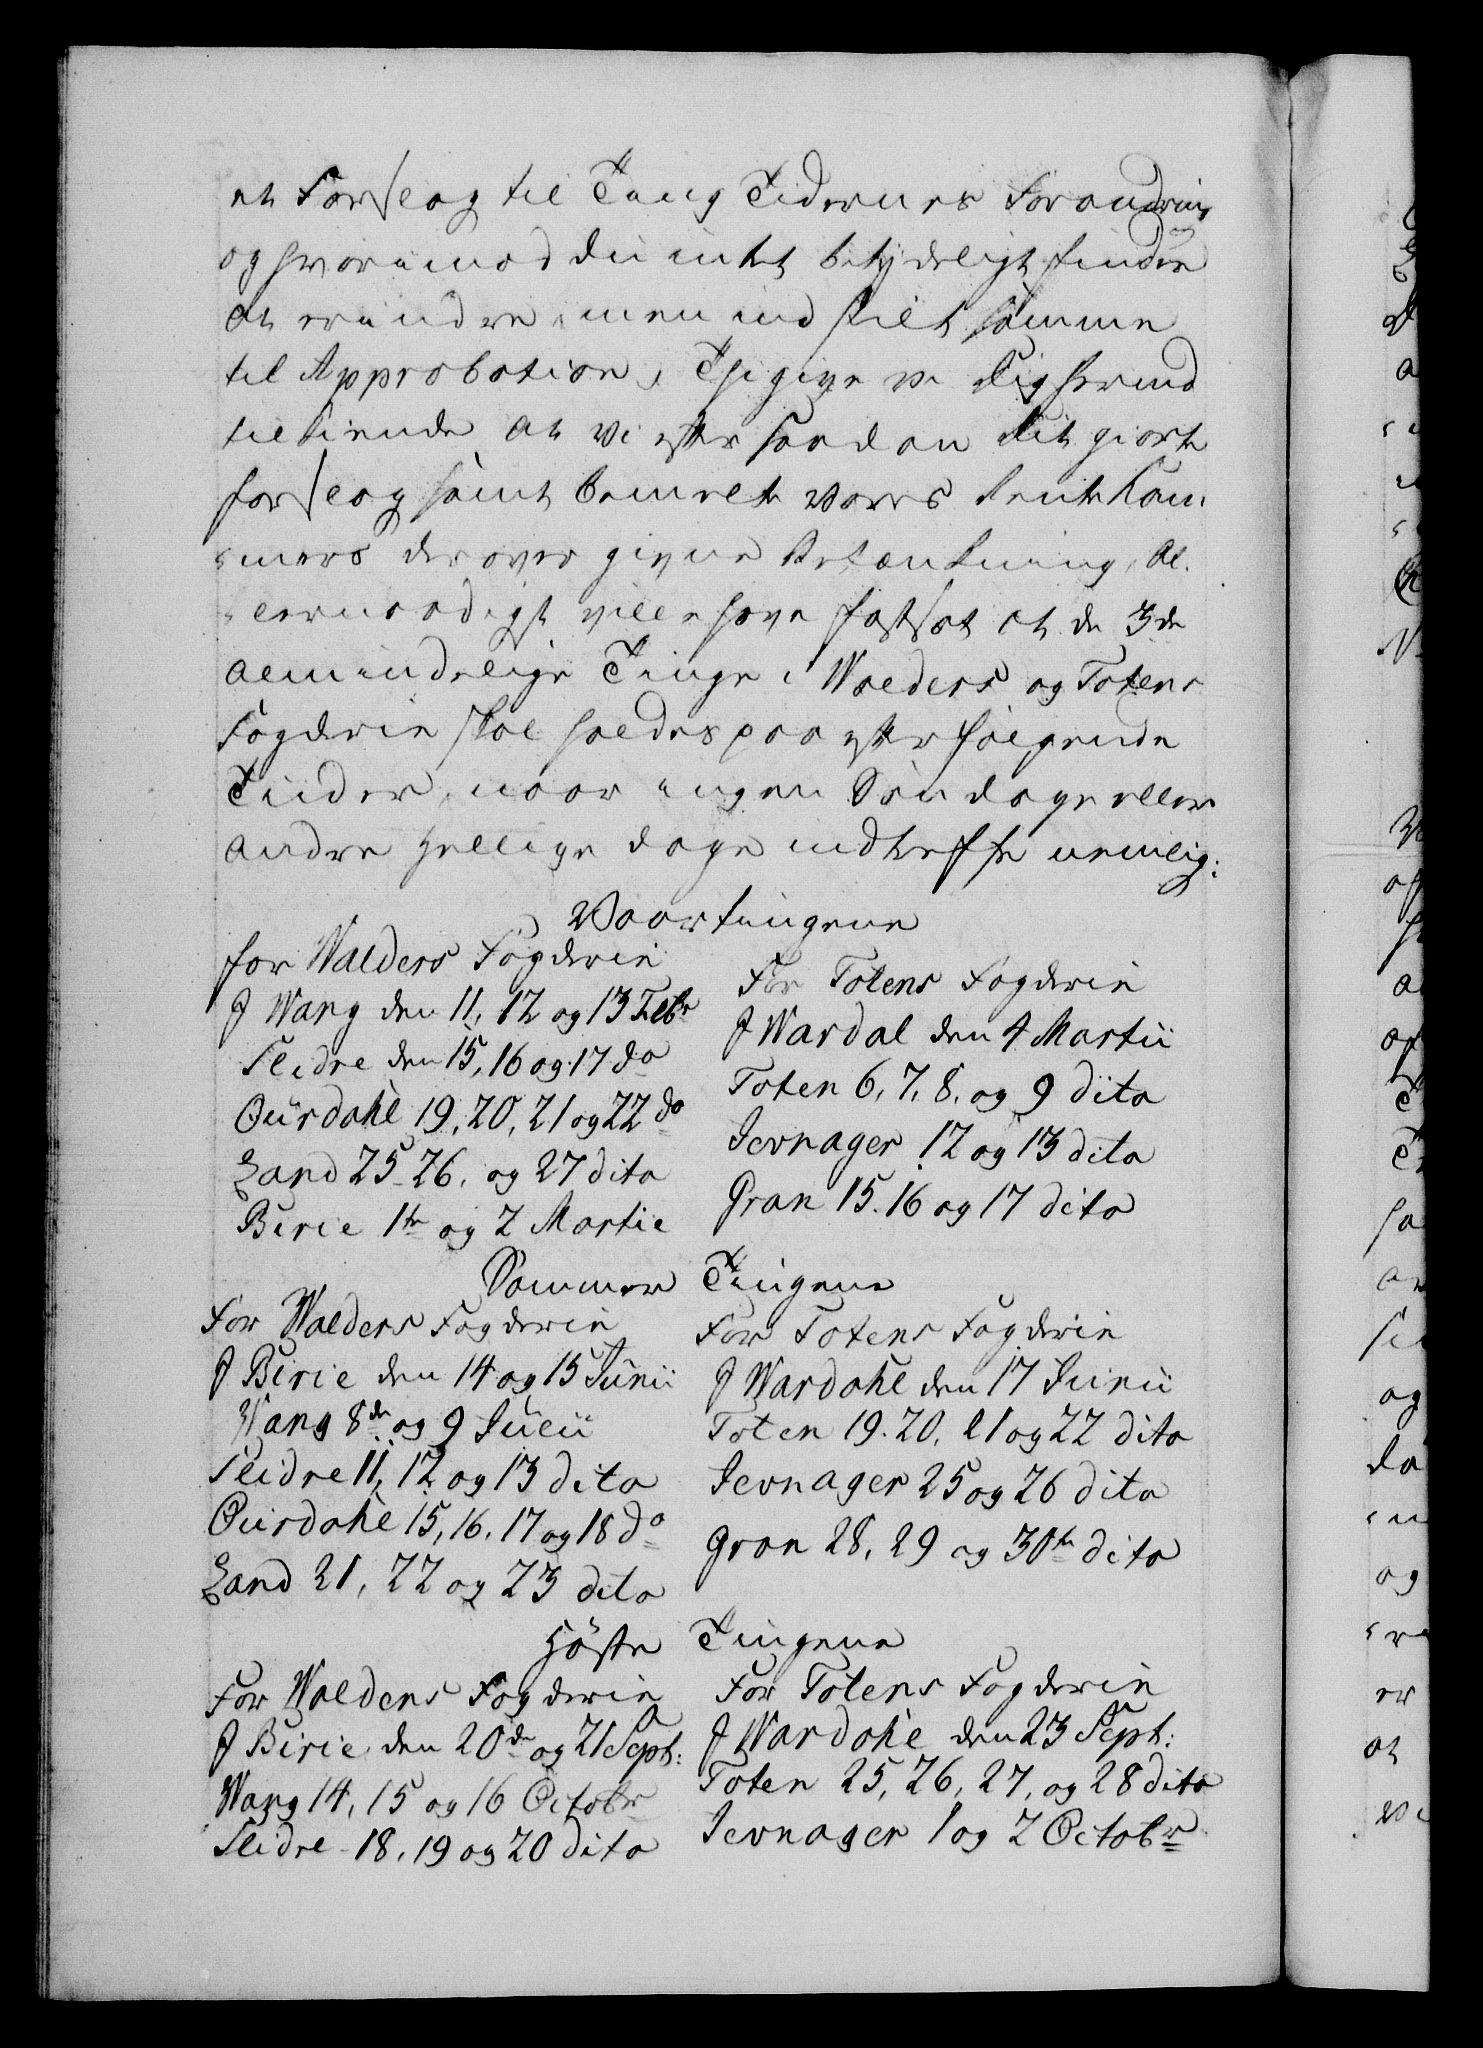 et Forslag til Ting Tidernes Forandring
og hvorimod du intet betydeligt finder
at erindre, men indstilt samme
til Approbation, Thi give vi dig hermed
tilkiende at vi efter saadan dit giorte
forslag samt bemelte vores Rente Kam-
-mers derover givne Betænkning, Al-
-lernaadigst ville have fastsat at de 3de
almindelige Tinge i Walders og Totens
Fogderie skal holdes paa efterfølgende
Tiider, naar ingen Søndage eller
andre Hellige dage indtreffe nemlig:
Vaartingene
for Walders Fogderie
J Wang den 11, 12 og 13 Febr
Slidre den 15, 16 og 17 do
Ourdahl 19, 20, 21 og 22 do
Land 25 26, og 27 dito
Birie 1te og 2 Martie
For Totens Fogderie
J Wardal den 4 Martii
Toten 6, 7, 8, og 9 dito
Jevnager 12 og 13 dito
Gran 15. 16 og 17 dito
Sommer Tingene
For Walders Fogderie
J Birie den 14 og 15 Junii
Wang 8de og 9 Julii
Slidre 11, 12 og 13 dito
Ourdahl 15, 16, 17 og 18 do
Land 21, 22 og 23 dito
For Totens Fogderie
J Wardahl den 17 Junii
Toten 19. 20, 21 og 22 dito
Jevnager 25 og 26 dito
Gran 28, 29 og 30te dito
Høste Tingene
For Walders Fogderie
J Birie den 20de og 21 Sept:
Wang 14, 15 og 16 Octobr
Slidre 18, 19 og 20 dito
For Totens Fogderie
J Wardahl den 23 Sept:
Toten 25, 26, 27, og 28 dito
Jevnager 1 og 2 Octobr